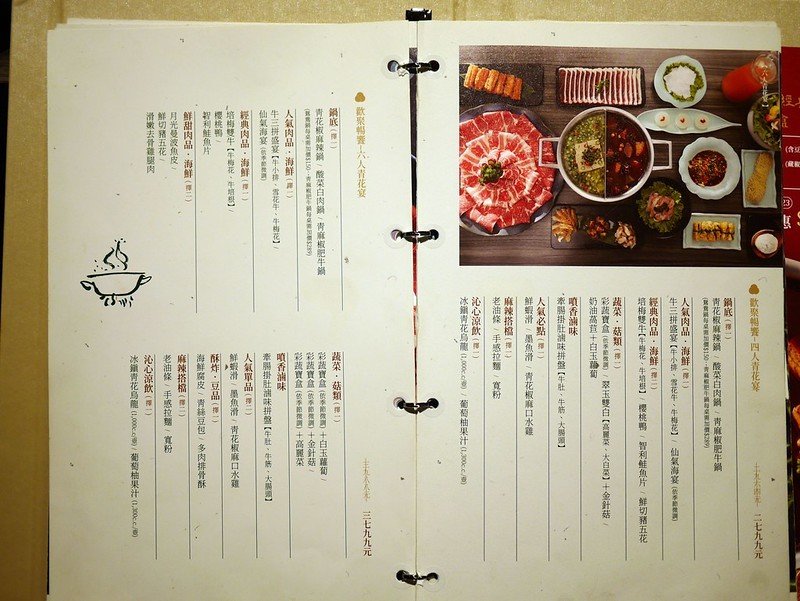 歡聚暢饗-四人青花宴
鍋底(擇一)
青花椒麻辣鍋/酸菜白肉鍋/青麻椒肥牛鍋
人氣肉品·海鮮(擇一)
牛三拼盛宴【牛小排、雪花牛、牛梅花】/仙氣海宴(依季節微調)
經典肉品·海鮮(擇一)
培梅雙牛【牛梅花、牛培根】/櫻桃鴨/智利鮭魚片/鮮切豬五花
蔬菜·菇類(擇一)
彩蔬寶盒(依季節微調)/翠玉雙白【高麗菜、大白菜】+金針菇/
奶油萵苣+白玉蘿蔔
噴香滷味
牽腸掛肚滷味拼盤【牛肚、牛筋、大腸頭】
人氣必點(擇一)
鮮蝦滑/墨魚滑/青花椒麻口水雞
麻辣搭檔(擇二)
老油條/手感拉麵/寬粉
沁心涼飲(擇一)
冰鎮青花烏龍(1,000c.c./壺)/葡萄柚果汁(1,300c.c./壺)
二七九九元
歡聚暢饗-六人青花宴
鍋底(擇一)
青花椒麻辣鍋/酸菜白肉鍋/青麻椒肥牛鍋
(鴛鴦鍋每桌需加價$150,青麻椒肥牛鍋每桌需加價$289)
人氣肉品·海鮮(擇一)
牛三拼盛宴【牛小排、雪花牛、牛梅花】/
仙氣海宴(依季節微調)
經典肉品·海鮮(擇一)
培梅雙牛【牛梅花、牛培根】/
櫻桃鴨/
智利鮭魚片
鮮甜肉品·海鮮(擇二)
月光曼波魚皮/
鮮切豬五花/
滑嫩去骨雞腿肉
蔬菜·菇類(擇一)
彩蔬寶盒(依季節微調)+白玉蘿蔔/
彩蔬寶盒(依季節微調)+金針菇/
彩蔬寶盒(依季節微調)+高麗菜
噴香滷味
牽腸掛肚滷味拼盤【牛肚、牛筋、大腸頭】
人氣單品(擇一)
鮮蝦滑/墨魚滑/青花椒麻口水雞
酥炸·豆品(擇一)
海鮮腐皮/青絲豆包/多肉排骨酥
麻辣搭檔(擇二)
老油條/手感拉麵/寬粉
沁心涼飲(擇一)
冰鎮青花烏龍(1,000c.c./壺)/葡萄柚果汁(1,300c.c./壺)
三七九九元